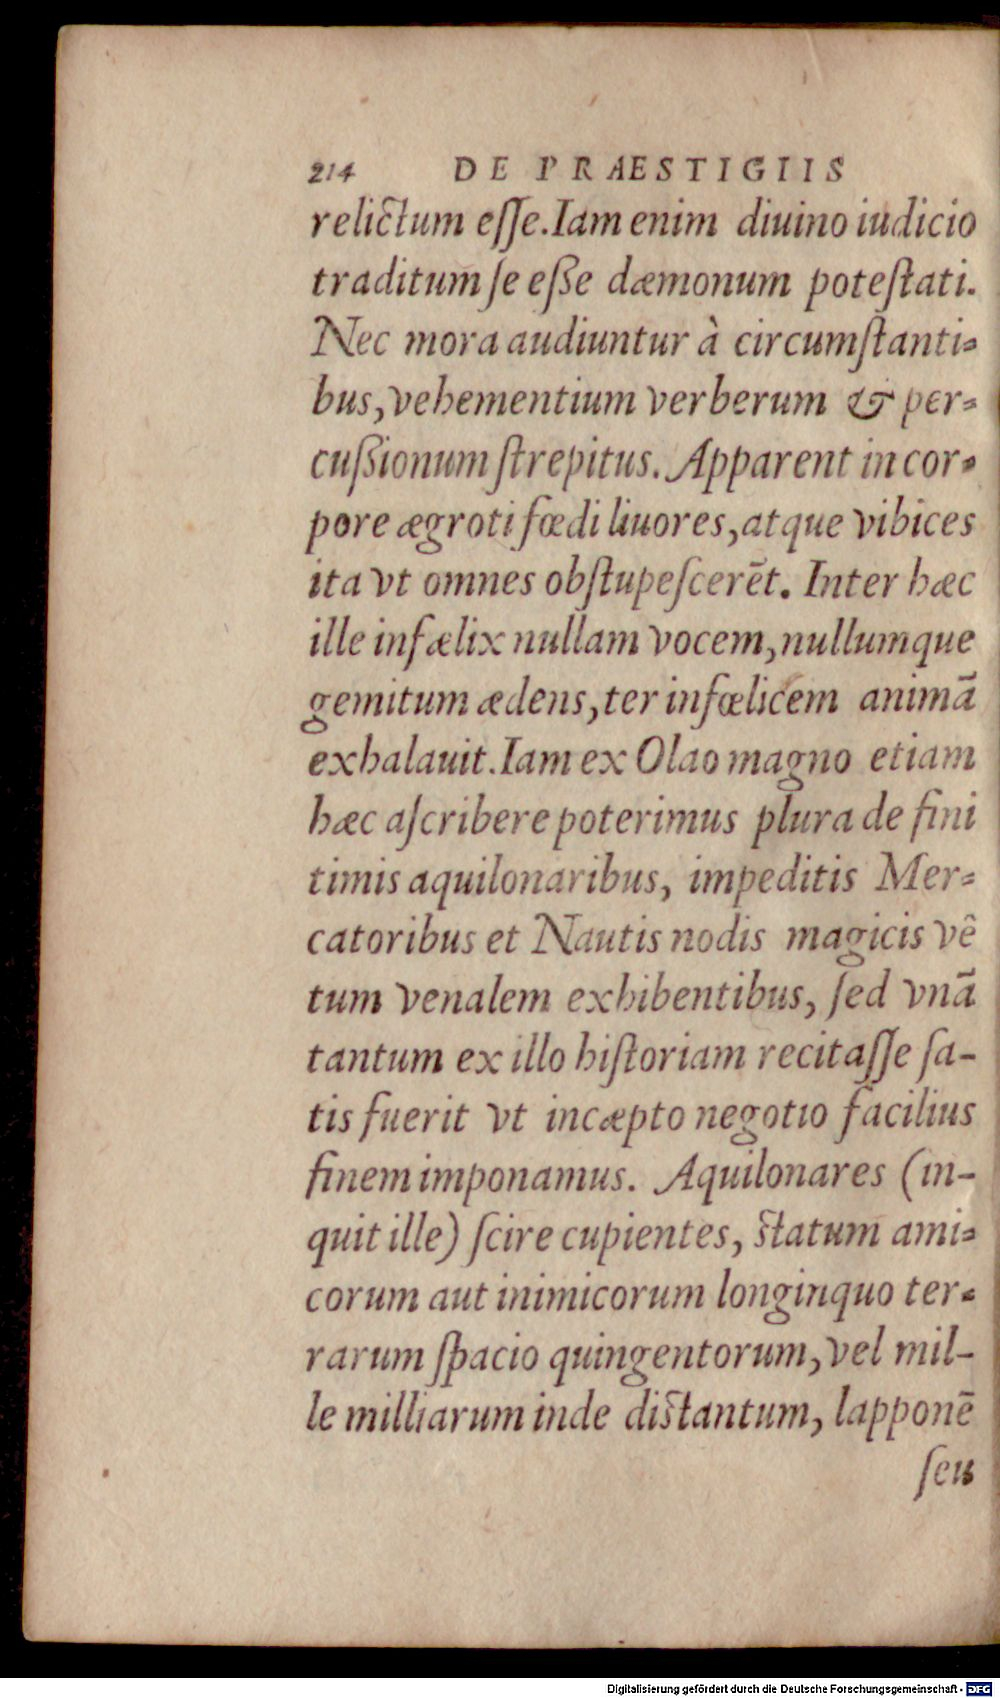 214 DE PRAESTIGIIS
relictum eſſe. Iam enim diuino iudicio
traditum ſe eße dæmonum poteſtati.
Nec mora audiuntur à circumſtanti-
bus, vehementium verberum & per-
cußionum ſtrepitus. Apparent in cor-
pore ægroti fœdi liuores, atque vibices
ita vt omnes obſtupeſcerēt. Inter hæc
ille infælix nullam vocem, nullumque
gemitum ædens, ter infœlicem animā
exhalauit. Iam ex Olao magno etiam
hæc aſcribere poterimus plura de fini
timis aquilonaribus, impeditis Mer-
catoribus et Nautis nodis magicis vê
tum venalem exhibentibus, ſed vnā
tantum ex illo hiſtoriam recitaſſe ſa-
tis fuerit vt incæpto negotio facilius
finem imponamus. Aquilonares (in-
quit ille) ſcire cupientes, ſtatum ami-
corum aut inimicorum longinquo ter-
rarum ſpacio quingentorum, vel mil-
le milliarum inde diſtantum, lapponē
ſeu
Digitalisierung gefördert durch die Deutsche Forschungsgemeinschaft - DFG